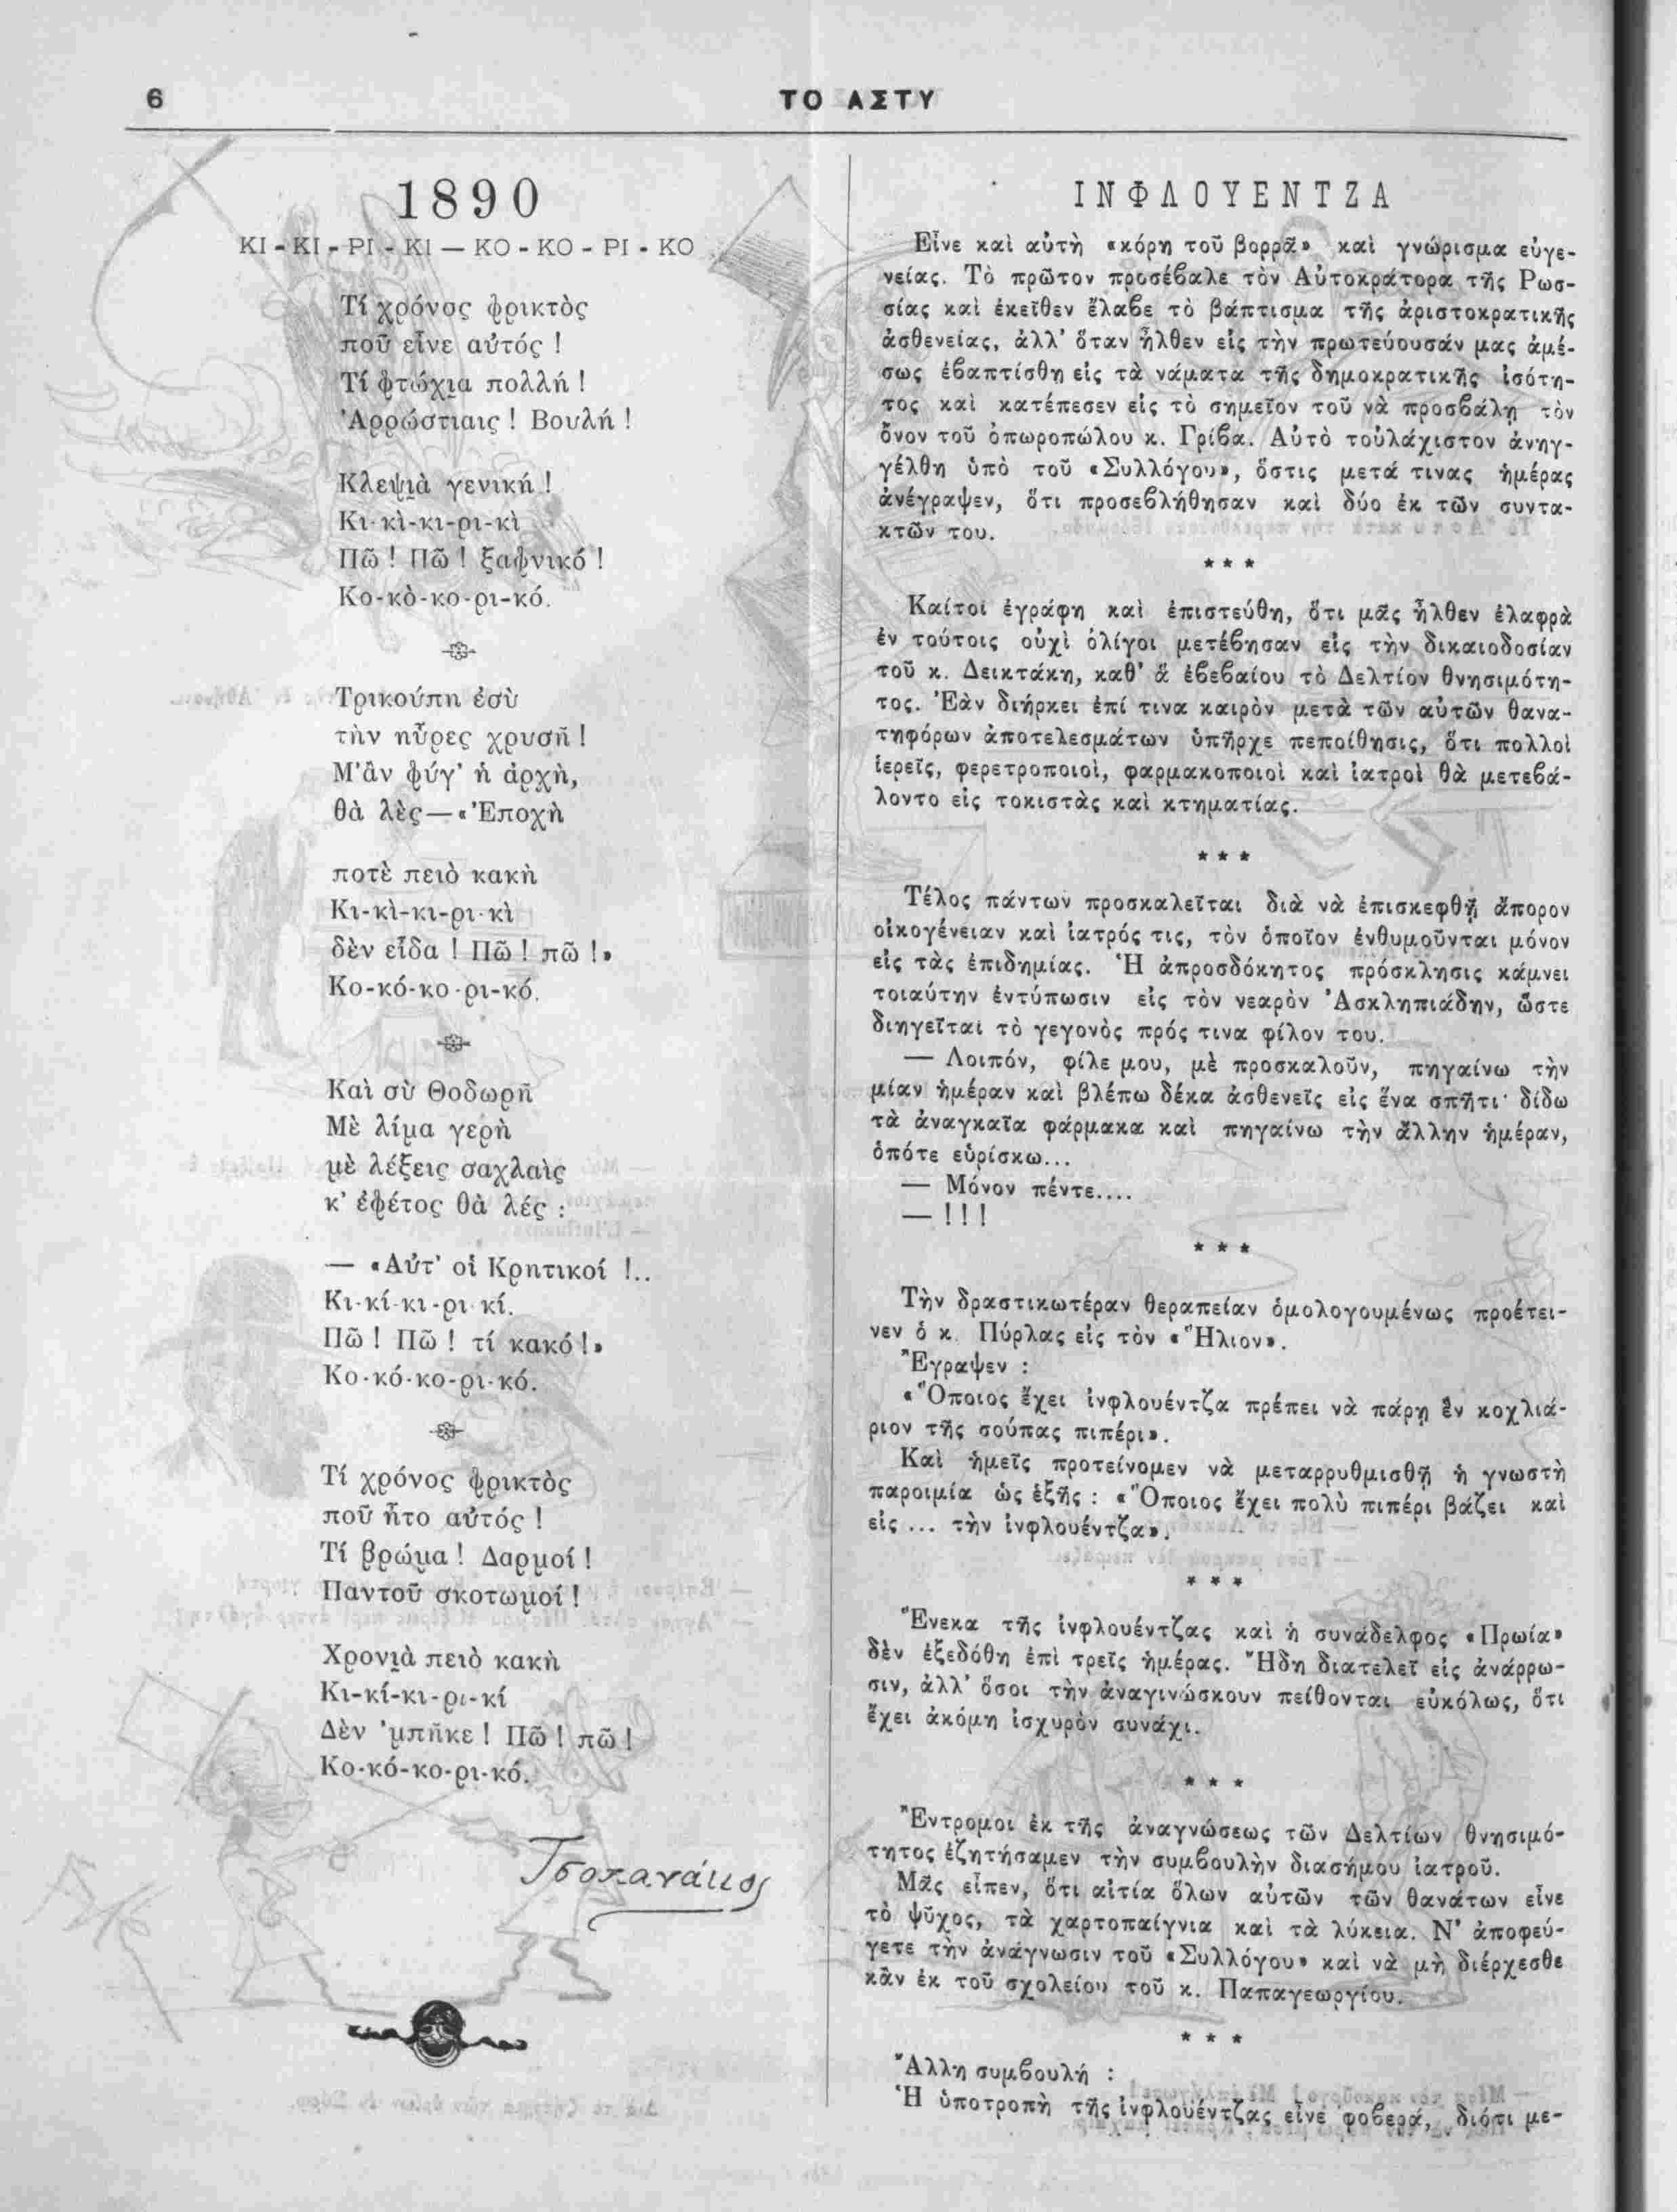 6
ΤΟ ΑΣΤΥ
1890
ΚΙ - ΚΙ - ΡΙ - ΚΙ — ΚΟ - ΚΟ - ΡΙ - ΚΟ
Τί χρόνος φρικτὸς
ποῦ εἶνε αὐτός !
Τί φτώχια πολλή !
Ἀρρώστιαις ! Βουλή !
Κλεψιὰ γενική !
Κι-κὶ-κι-ρι-κὶ
Πῶ ! Πῶ ! ξαφνικό !
Κο-κὸ-κο-ρι-κό.
Τρικούπη ἐσὺ
τὴν ηὗρες χρυσῆ !
Μ' ἂν φύγ' ἡ ἀρχὴ,
θὰ λὲς — «Ἐποχὴ
ποτὲ πειὸ κακὴ
Κι-κὶ-κι-ρι-κὶ
δὲν εἶδα ! Πῶ ! πῶ !»
Κο-κό-κο-ρι-κό.
Καὶ σὺ Θοδωρῆ
Μὲ λίμα γερὴ
μὲ λέξεις σαχλαὶς
κ' ἐφέτος θὰ λές :
— «Αὐτ' οἱ Κρητικοί !..
Κι-κί-κι-ρι-κί.
Πῶ ! Πῶ ! τί κακό !»
Κο-κό-κο-ρι-κό.
Τί χρόνος φρικτὸς
ποῦ ἦτο αὐτός !
Τί βρώμα ! Δαρμοί !
Παντοῦ σκοτωμοί !
Χρονιὰ πειὸ κακὴ
Κι-κί-κι-ρι-κί
Δὲν 'μπῆκε ! Πῶ ! πῶ !
Κο-κό-κο-ρι-κό.
Τσοπανάκος
ΙΝΦΛΟΥΕΝΤΖΑ
Εἶνε καὶ αὐτὴ «κόρη τοῦ βορρᾶ» καὶ γνώρισμα εὐγε-
νείας. Τὸ πρῶτον προσέβαλε τὸν Αὐτοκράτορα τῆς Ρωσ-
σίας καὶ ἐκεῖθεν ἔλαβε τὸ βάπτισμα τῆς ἀριστοκρατικῆς
ἀσθενείας, ἀλλ' ὅταν ἦλθεν εἰς τὴν πρωτεύουσάν μας ἀμέ-
σως ἐβαπτίσθη εἰς τὰ νάματα τῆς δημοκρατικῆς ἰσότη-
τος καὶ κατέπεσεν εἰς τὸ σημεῖον τοῦ νὰ προσβάλῃ τὸν
ὄνον τοῦ ὀπωροπώλου κ. Γρίβα. Αὐτὸ τοὐλάχιστον ἀνηγ-
γέλθη ὑπὸ τοῦ «Συλλόγου», ὅστις μετά τινας ἡμέρας
ἀνέγραψεν, ὅτι προσεβλήθησαν καὶ δύο ἐκ τῶν συντα-
κτῶν του.
* * *
Καίτοι ἐγράφη καὶ ἐπιστεύθη, ὅτι μᾶς ἦλθεν ἐλαφρὰ
ἐν τούτοις οὐχὶ ὀλίγοι μετέβησαν εἰς τὴν δικαιοδοσίαν
τοῦ κ. Δεικτάκη, καθ' ἃ ἐβεβαίου τὸ Δελτίον θνησιμότη-
τος. Ἐὰν διήρκει ἐπί τινα καιρὸν μετὰ τῶν αὐτῶν θανα-
τηφόρων ἀποτελεσμάτων ὑπῆρχε πεποίθησις, ὅτι πολλοὶ
ἱερεῖς, φερετροποιοὶ, φαρμακοποιοὶ καὶ ἰατροὶ θὰ μετεβά-
λοντο εἰς τοκιστὰς καὶ κτηματίας.
* * *
Τέλος πάντων προσκαλεῖται διὰ νὰ ἐπισκεφθῇ ἄπορον
οἰκογένειαν καὶ ἰατρός τις, τὸν ὁποῖον ἐνθυμοῦνται μόνον
εἰς τὰς ἐπιδημίας. Ἡ ἀπροσδόκητος πρόσκλησις κάμνει
τοιαύτην ἐντύπωσιν εἰς τὸν νεαρὸν Ἀσκληπιάδην, ὥστε
διηγεῖται τὸ γεγονὸς πρός τινα φίλον του.
— Λοιπόν, φίλε μου, μὲ προσκαλοῦν, πηγαίνω τὴν
μίαν ἡμέραν καὶ βλέπω δέκα ἀσθενεῖς εἰς ἕνα σπῆτι· δίδω
τὰ ἀναγκαῖα φάρμακα καὶ πηγαίνω τὴν ἄλλην ἡμέραν,
ὁπότε εὑρίσκω...
— Μόνον πέντε....
— ! ! !
* * *
Τὴν δραστικωτέραν θεραπείαν ὁμολογουμένως προέτει-
νεν ὁ κ. Πύρλας εἰς τὸν «Ἥλιον».
Ἔγραψεν :
«Ὅποιος ἔχει ἰνφλουέντζα πρέπει νὰ πάρῃ ἓν κοχλιά-
ριον τῆς σούπας πιπέρι».
Καὶ ἡμεῖς προτείνομεν νὰ μεταρρυθμισθῇ ἡ γνωστὴ
παροιμία ὡς ἑξῆς : «Ὅποιος ἔχει πολὺ πιπέρι βάζει καὶ
εἰς ... τὴν ἰνφλουέντζα».
* * *
Ἕνεκα τῆς ἰνφλουέντζας καὶ ἡ συνάδελφος «Πρωία»
δὲν ἐξεδόθη ἐπὶ τρεῖς ἡμέρας. Ἤδη διατελεῖ εἰς ἀνάρρω-
σιν, ἀλλ' ὅσοι τὴν ἀναγινώσκουν πείθονται εὐκόλως, ὅτι
ἔχει ἀκόμη ἰσχυρὸν συνάχι.
* * *
Ἔντρομοι ἐκ τῆς ἀναγνώσεως τῶν Δελτίων θνησιμό-
τητος ἐζητήσαμεν τὴν συμβουλὴν διασήμου ἰατροῦ.
Μᾶς εἶπεν, ὅτι αἰτία ὅλων αὐτῶν τῶν θανάτων εἶνε
τὸ ψῦχος, τὰ χαρτοπαίγνια καὶ τὰ λύκεια. Ν' ἀποφεύ-
γετε τὴν ἀνάγνωσιν τοῦ «Συλλόγου» καὶ νὰ μὴ διέρχεσθε
κἂν ἐκ τοῦ σχολείου τοῦ κ. Παπαγεωργίου.
* * *
Ἄλλη συμβουλή :
Ἡ ὑποτροπὴ τῆς ἰνφλουέντζας εἶνε φοβερά, διότι με-